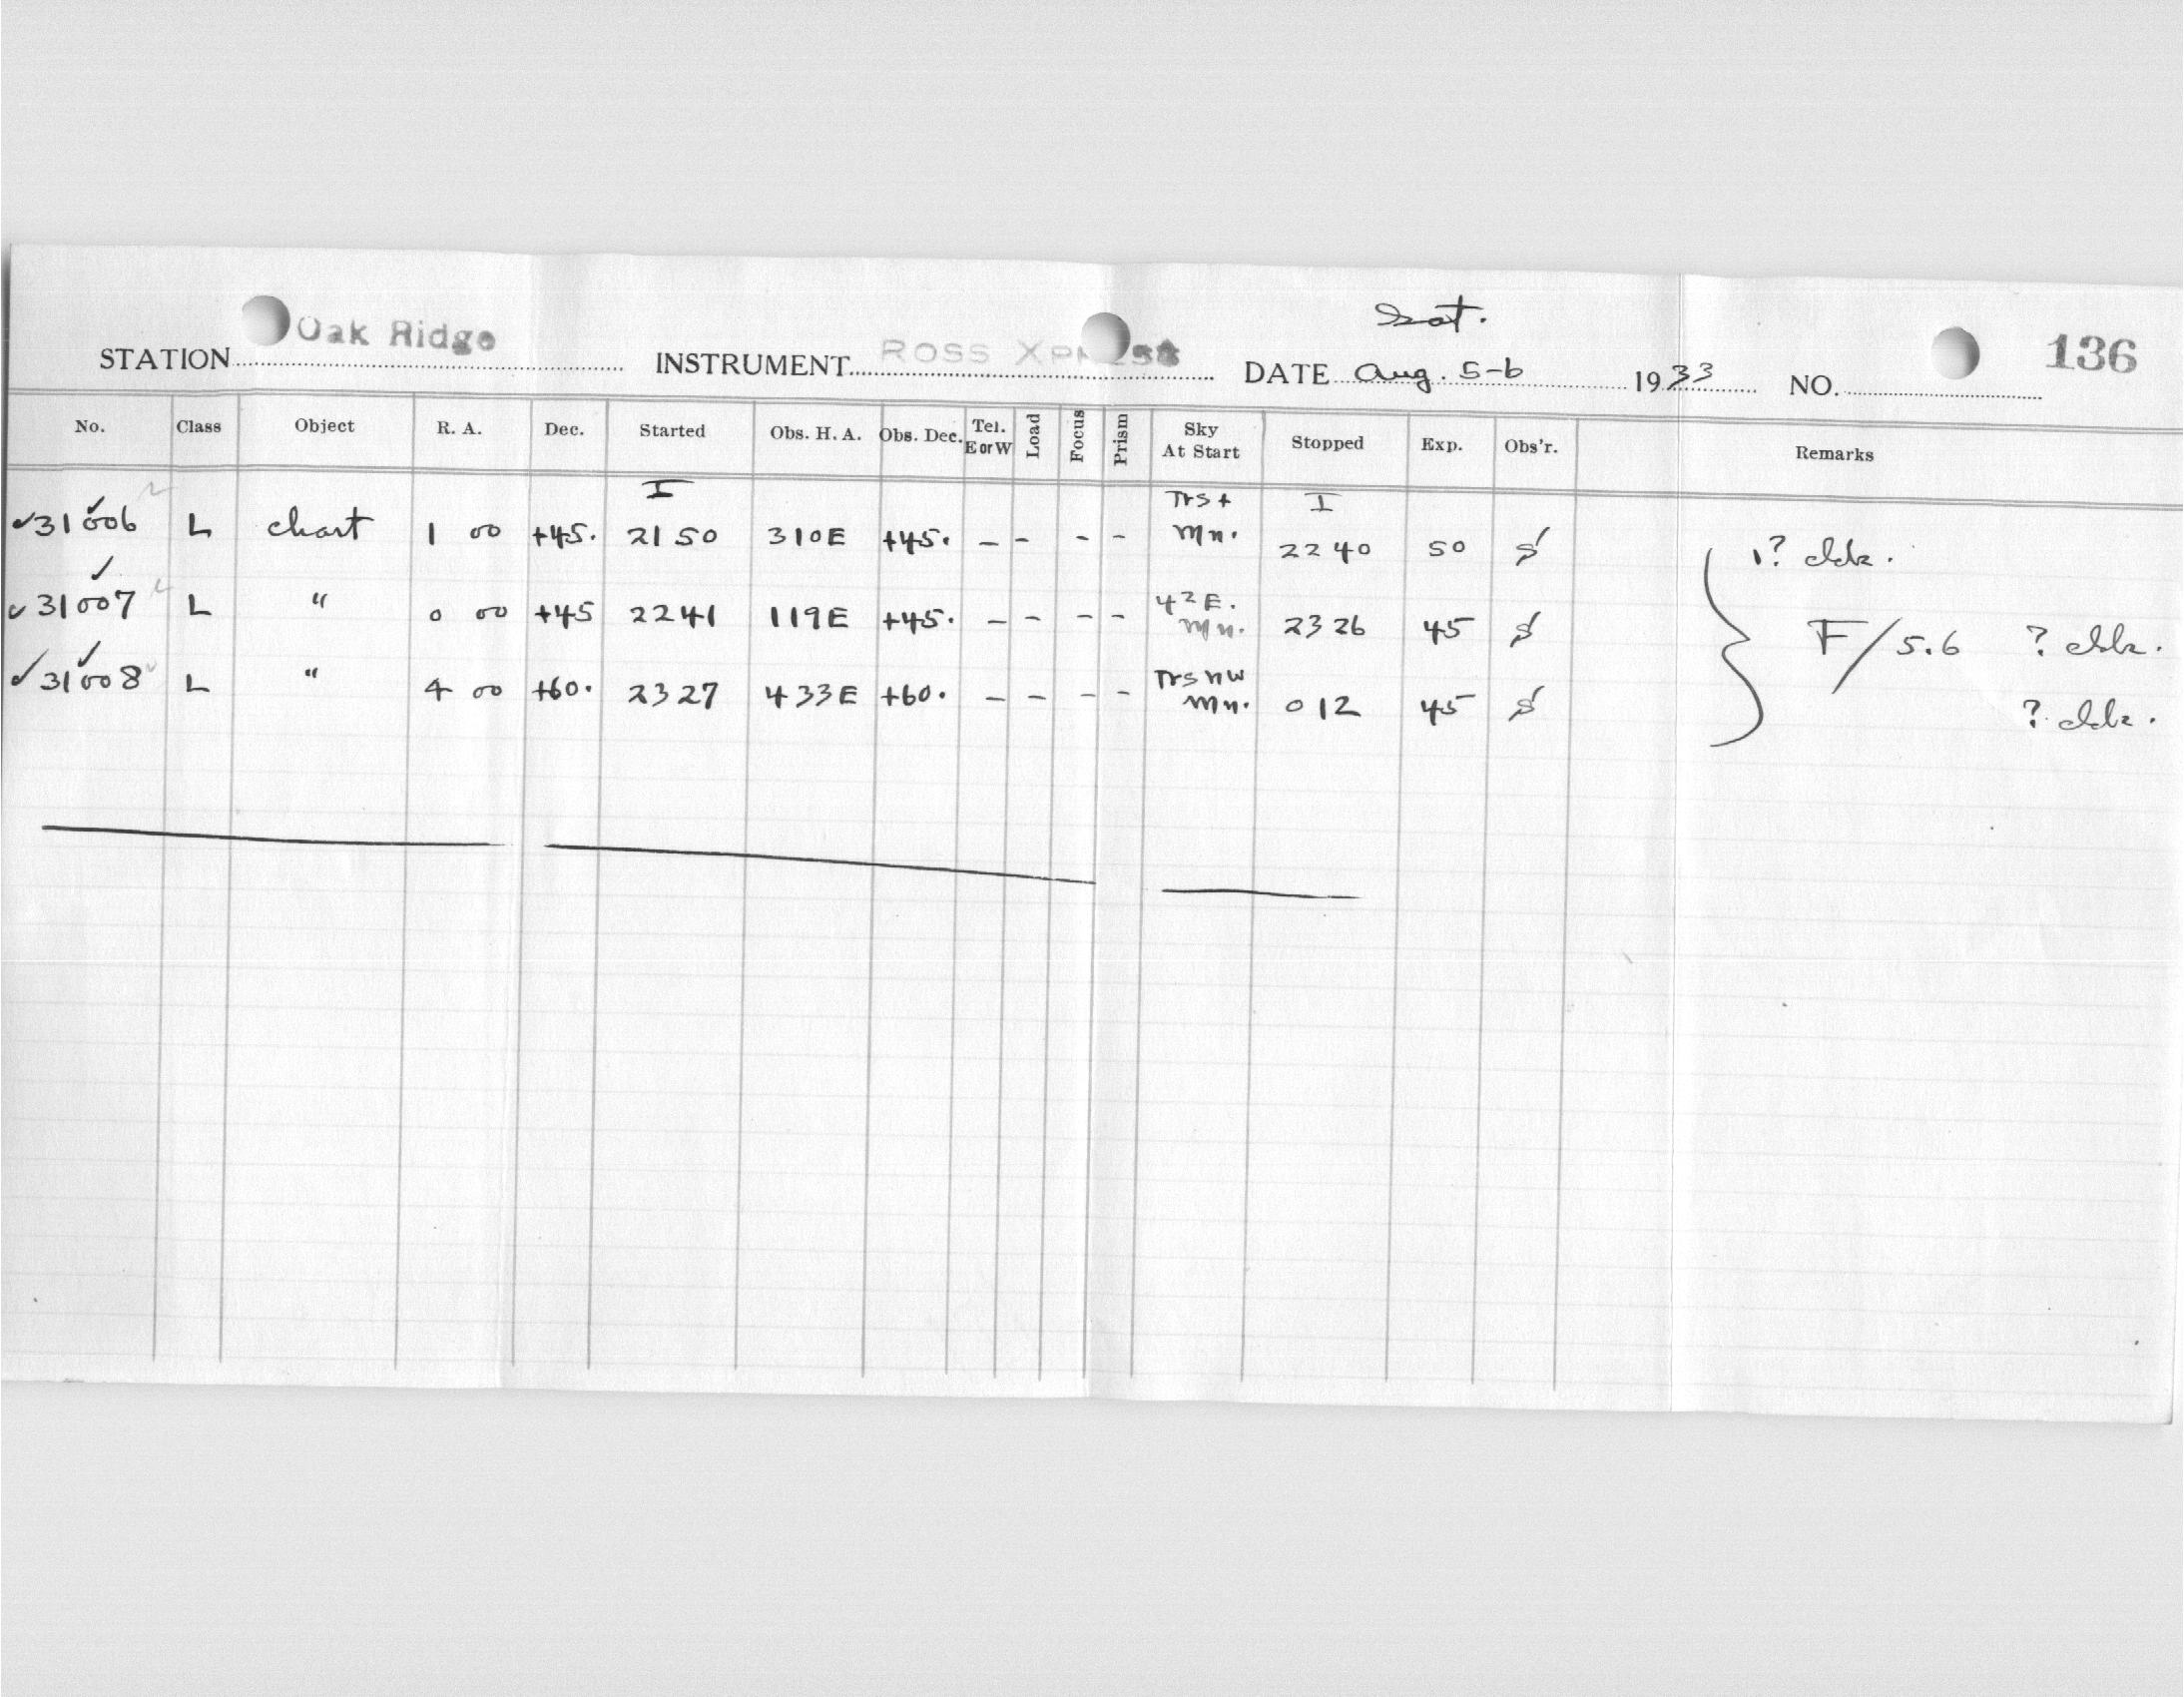 Sat.
STATION Oak Ridge INSTRUMENT ROSS XPRESS DATE Aug. 5-6 1933 NO. 136
No. Class Object R. A. Dec. Started Obs. H. A. Obs. Dec. Tel. E or W Load Focus Prism Sky At Start Stopped Exp. Obs'r. Remarks
I Trs + I
✓31006 L chart 1 00 +45. 21 50 310E +45. - - - - Mn. 22 40 50 S ?
✓31007 L " 0 00 +45 22 41 119E +45. - - - - 4²E. Mn. 23 26 45 S F/5.6 ?
✓31008 L " 4 00 +60. 23 27 433E +60. - - - - Trs NW Mn. 0 12 45 S ?